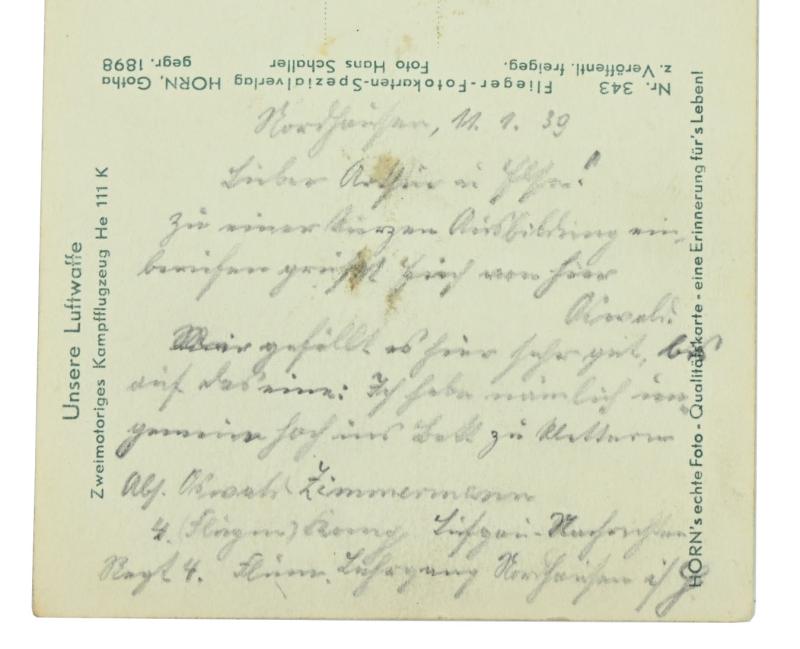 Nr. 343 Flieger-Fotokarten-Spezialverlag HORN, Gotha
z. Veröffentl. freigeg. Foto Hans Schaller gegr. 1898
Unsere Luftwaffe
Zweimotoriges Kampfflugzeug He 111 K
HORN's echte Foto-Qualitätskarte - eine Erinnerung für's Leben!
Nordhausen, 11. 1. 39
Lieber Arthur u
Zu einer kurzen Ausbildung ein-
berufen grüßt Euch von hier
Oswald.
Mir gefällt es hier sehr gut, bis
auf das eine: Ich habe nämlich un-
gemein hoch ins Bett zu klettern
Abs. Oswald Zimmermann
4. Komp. Luftgau-Nachrichten
Regt 4. Lehrgang Nordhausen